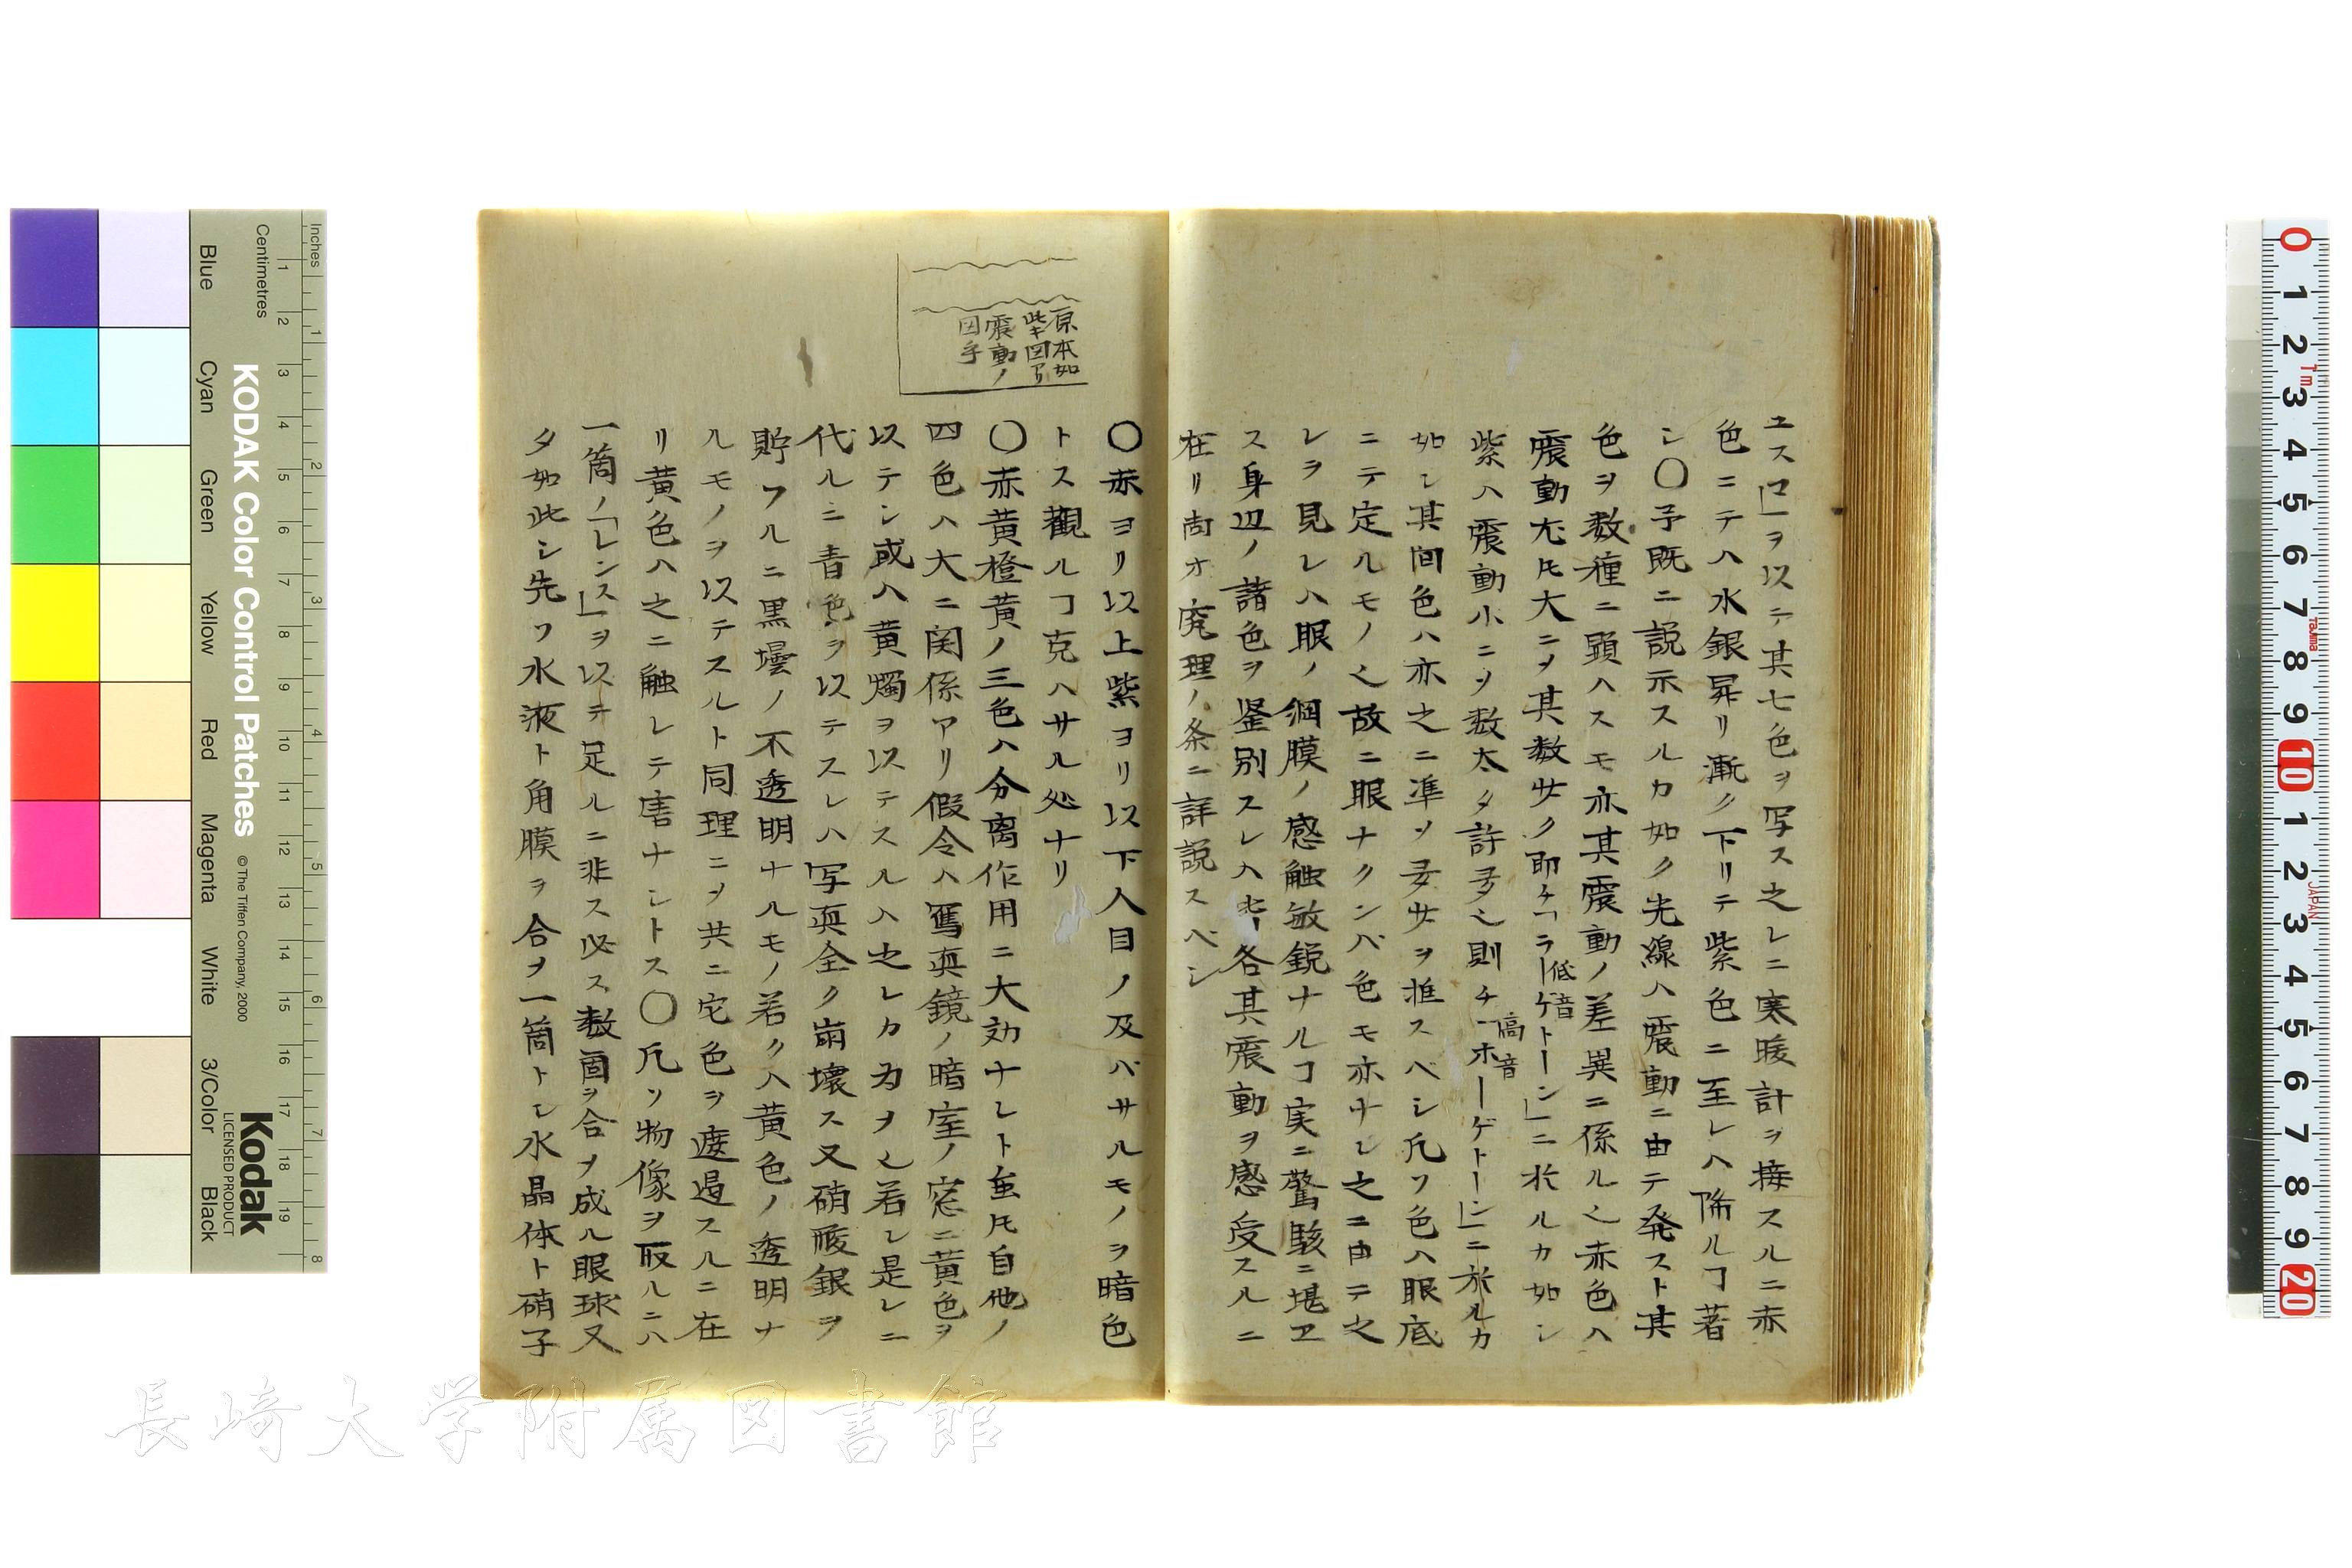 ヱスマ」ヲ以テ其七色ヲ写ス之レニ寒暖計ヲ接スルニ赤
色ニテハ水銀昇リ漸ク下リテ紫色ニ至レハ降ルヿ著
シ〇予既ニ説示スルカ如ク光線ハ震動ニ由テ発スト其
色ヲ数種ニ顕ハスモ亦其震動ノ差異ニ係ル也赤色ハ
震動尤𪜈大ニメ其数少ク即チ「ラーケトーン」ニ於ルカ如シ
低音
紫ハ震動小ニメ数太タ許多也則チ「ホーゲトーン」ニ於ルカ
高音
如シ其間色ハ亦之ニ準メ多少ヲ推スベシ凡ソ色ハ眼底
ニテ定ルモノ也故ニ眼ナクンバ色モ亦ナシ之ニ由テ之
レヲ見レハ眼ノ網膜ノ感触敏鋭ナルヿ実ニ驚駭ニ堪ヱ
ス身辺ノ諸色ヲ鑒別スレハ各其震動ヲ感受スルニ
在リ尚オ究理ノ条ニ詳説スベシ
原本如
此キ図アリ
震動ノ
図乎
〇赤ヨリ以上紫ヨリ以下人目ノ及バサルモノヲ暗色
トス観ルヿ克ハサル処ナリ
〇赤黄橙黄ノ三色ハ分离作用ニ大効ナレト𪜈自他ノ
四色ハ大ニ関係アリ假令ハ写真鏡ノ暗室ノ窓ニ黄色ヲ
以テシ或ハ黄燭ヲ以テスルハ之レカ為メ也若シ是レニ
代ルニ青色ヲ以テスレハ写真全ク崩壊ス又硝酸銀ヲ
貯フルニ黒壜ノ不透明ナルモノ若クハ黄色ノ透明ナ
ルモノヲ以テスルト同理ニメ共ニ它色ヲ遮過スルニ在
リ黄色ハ之ニ触レテ害ナシトス〇凡ソ物像ヲ取ルニハ
一箇ノ「レンス」ヲ以テ足ルニ非ス必ス数箇ヲ合メ成ル眼球又
タ如此シ先ツ水液ト角膜ヲ合メ一箇トシ水晶体ト硝子
KODAK Color Control Patches
© The Tiffen Company, 2000
Kodak
LICENSED PRODUCT
Inches
Centimetres
Blue
Cyan
Green
Yellow
Red
Magenta
White
3/Color
Black
1 2 3 4 5 6 7 8 9 10 11 12 13 14 15 16 17 18 19
1 2 3 4 5 6 7 8
0 1 2 3 4 5 6 7 8 9 10 1 2 3 4 5 6 7 8 9 20
1m
Tajima
JAPAN
長崎大学附属図書館